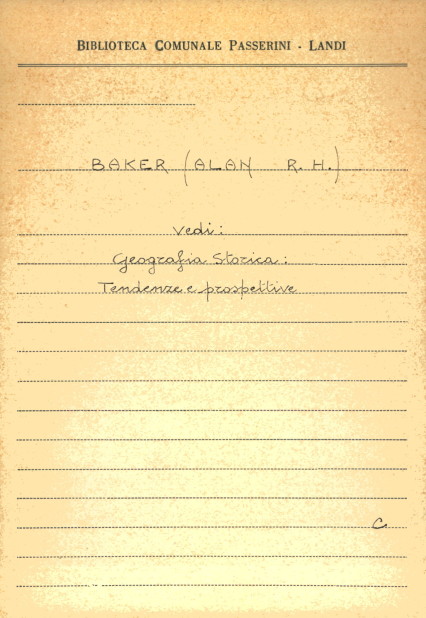 BIBLIOTECA COMUNALE PASSERINI - LANDI
BAKER (ALAN R.H.)
vedi:
Geografia Storica:
Tendenze e prospettive
C